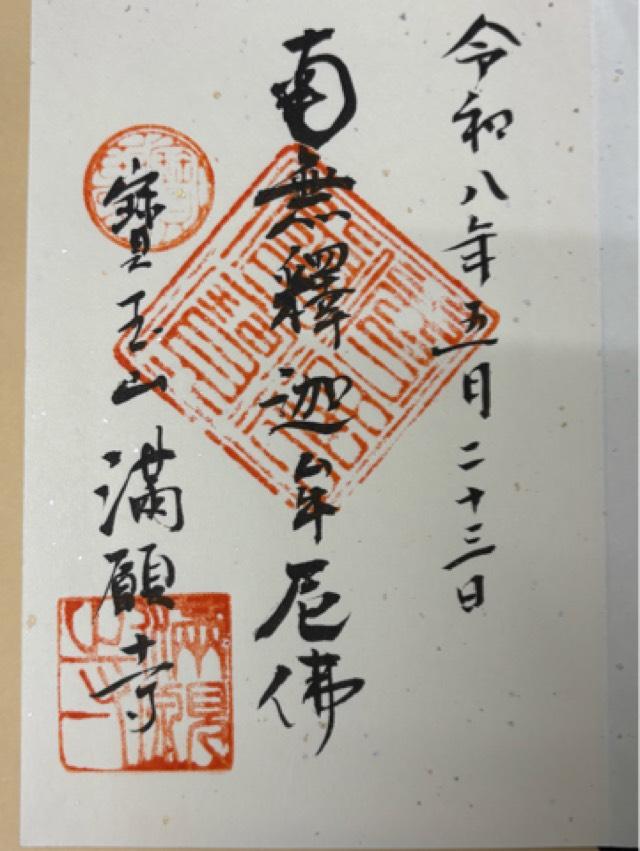 令和八年五月二十三日
南無釋迦牟尼佛
寶玉山 滿願寺